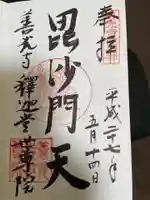 奉拝
平成二十七年
五月十四日
毘沙門天
善光寺釋迦堂世尊院